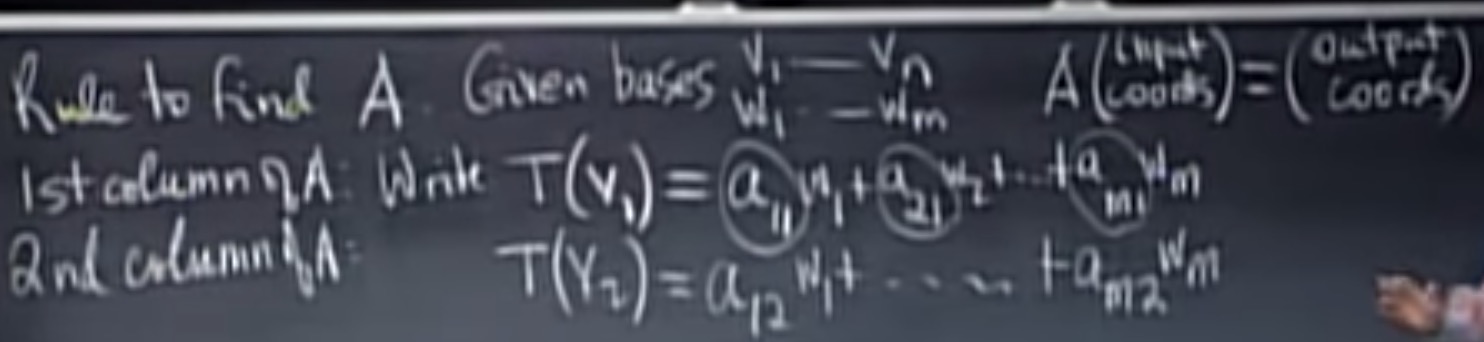 Rule to find A. Given bases v₁ — vₙ A (input coords) = (output coords)
w₁ — wₘ
1st column of A: Write T(v₁) = a₁₁w₁ + a₂₁w₂ + ... + aₘ₁wₘ
2nd column of A: T(v₂) = a₁₂w₁ + ..... + aₘ₂wₘ